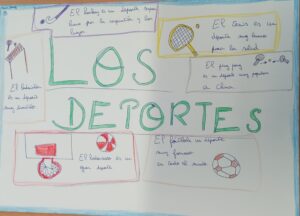 El hockey es un deporte
bueno por la
El tenis es un
deporte muy bueno
para la salud
LOS
El ping pong
es un deporte muy popular
a China
El
es un deporte
muy
DEPORTES
El baloncesto es un
gran deporte
El football es un deporte
muy famoso
en todo el mundo